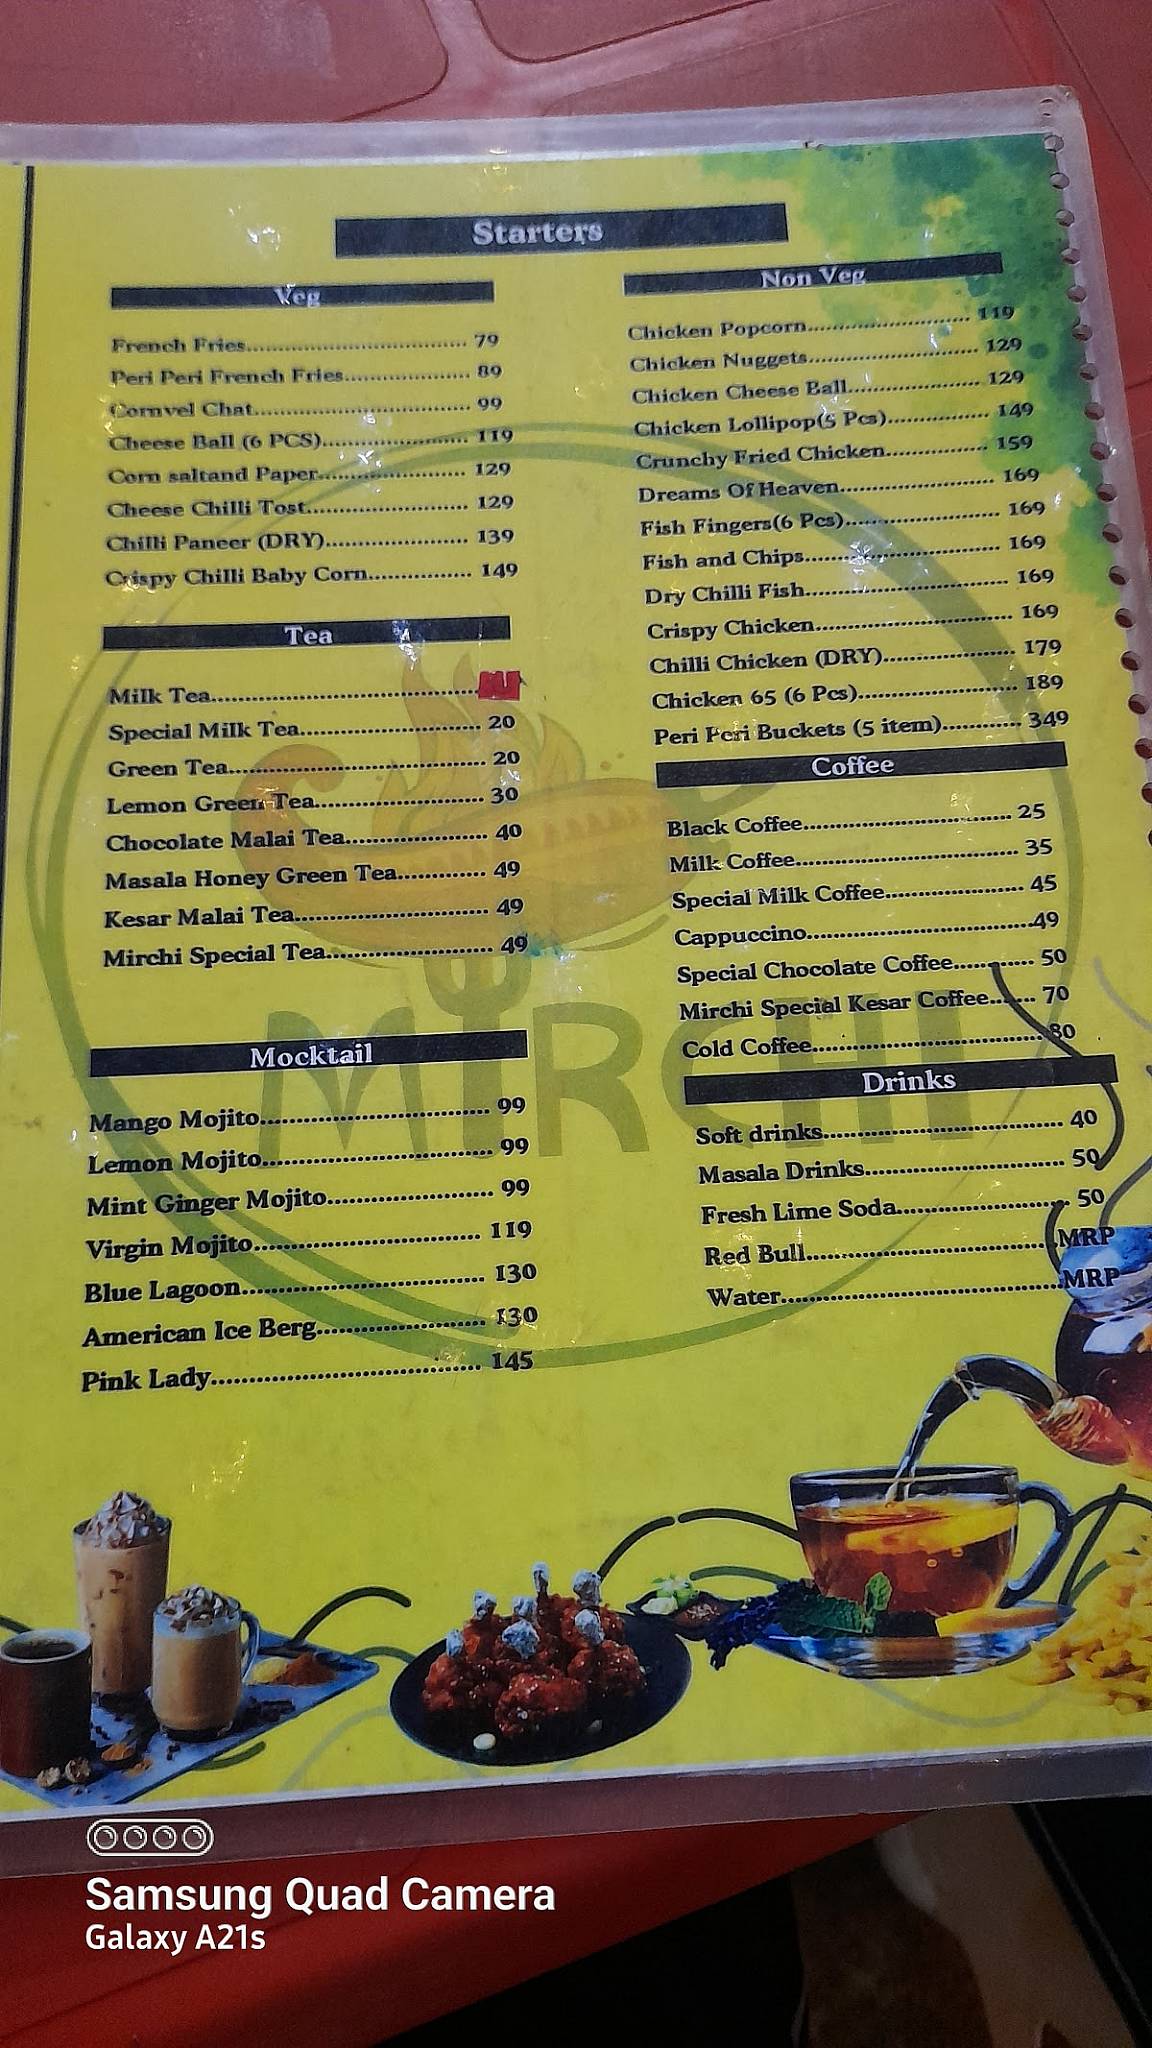 Starters
Veg
French Fries........ 79
Peri Peri French Fries........ 89
Cornvel Chat........ 99
Cheese Ball (6 PCS)........ 119
Corn saltand Paper........ 129
Cheese Chilli Tost........ 129
Chilli Paneer (DRY)........ 139
Crispy Chilli Baby Corn........ 149
Tea
Milk Tea........
Special Milk Tea........ 20
Green Tea........ 20
Lemon Green Tea........ 30
Chocolate Malai Tea........ 40
Masala Honey Green Tea........ 49
Kesar Malai Tea........ 49
Mirchi Special Tea........ 49
Mocktail
Mango Mojito........ 99
Lemon Mojito........ 99
Mint Ginger Mojito........ 99
Virgin Mojito........ 119
Blue Lagoon........ 130
American Ice Berg........ 130
Pink Lady........ 145
Non Veg
Chicken Popcorn........ 119
Chicken Nuggets........ 129
Chicken Cheese Ball........ 129
Chicken Lollipop(5 Pcs)........ 149
Crunchy Fried Chicken........ 159
Dreams Of Heaven........ 169
Fish Fingers(6 Pcs)........ 169
Fish and Chips........ 169
Dry Chilli Fish........ 169
Crispy Chicken........ 169
Chilli Chicken (DRY)........ 179
Chicken 65 (6 Pcs)........ 189
Peri Peri Buckets (5 item)........ 349
Coffee
Black Coffee........ 25
Milk Coffee........ 35
Special Milk Coffee........ 45
Cappuccino........ 49
Special Chocolate Coffee........ 50
Mirchi Special Kesar Coffee........ 70
Cold Coffee........ 80
Drinks
Soft drinks........ 40
Masala Drinks........ 50
Fresh Lime Soda........ 50
Red Bull........ MRP
Water........ MRP
MIRCHI
Samsung Quad Camera
Galaxy A21s